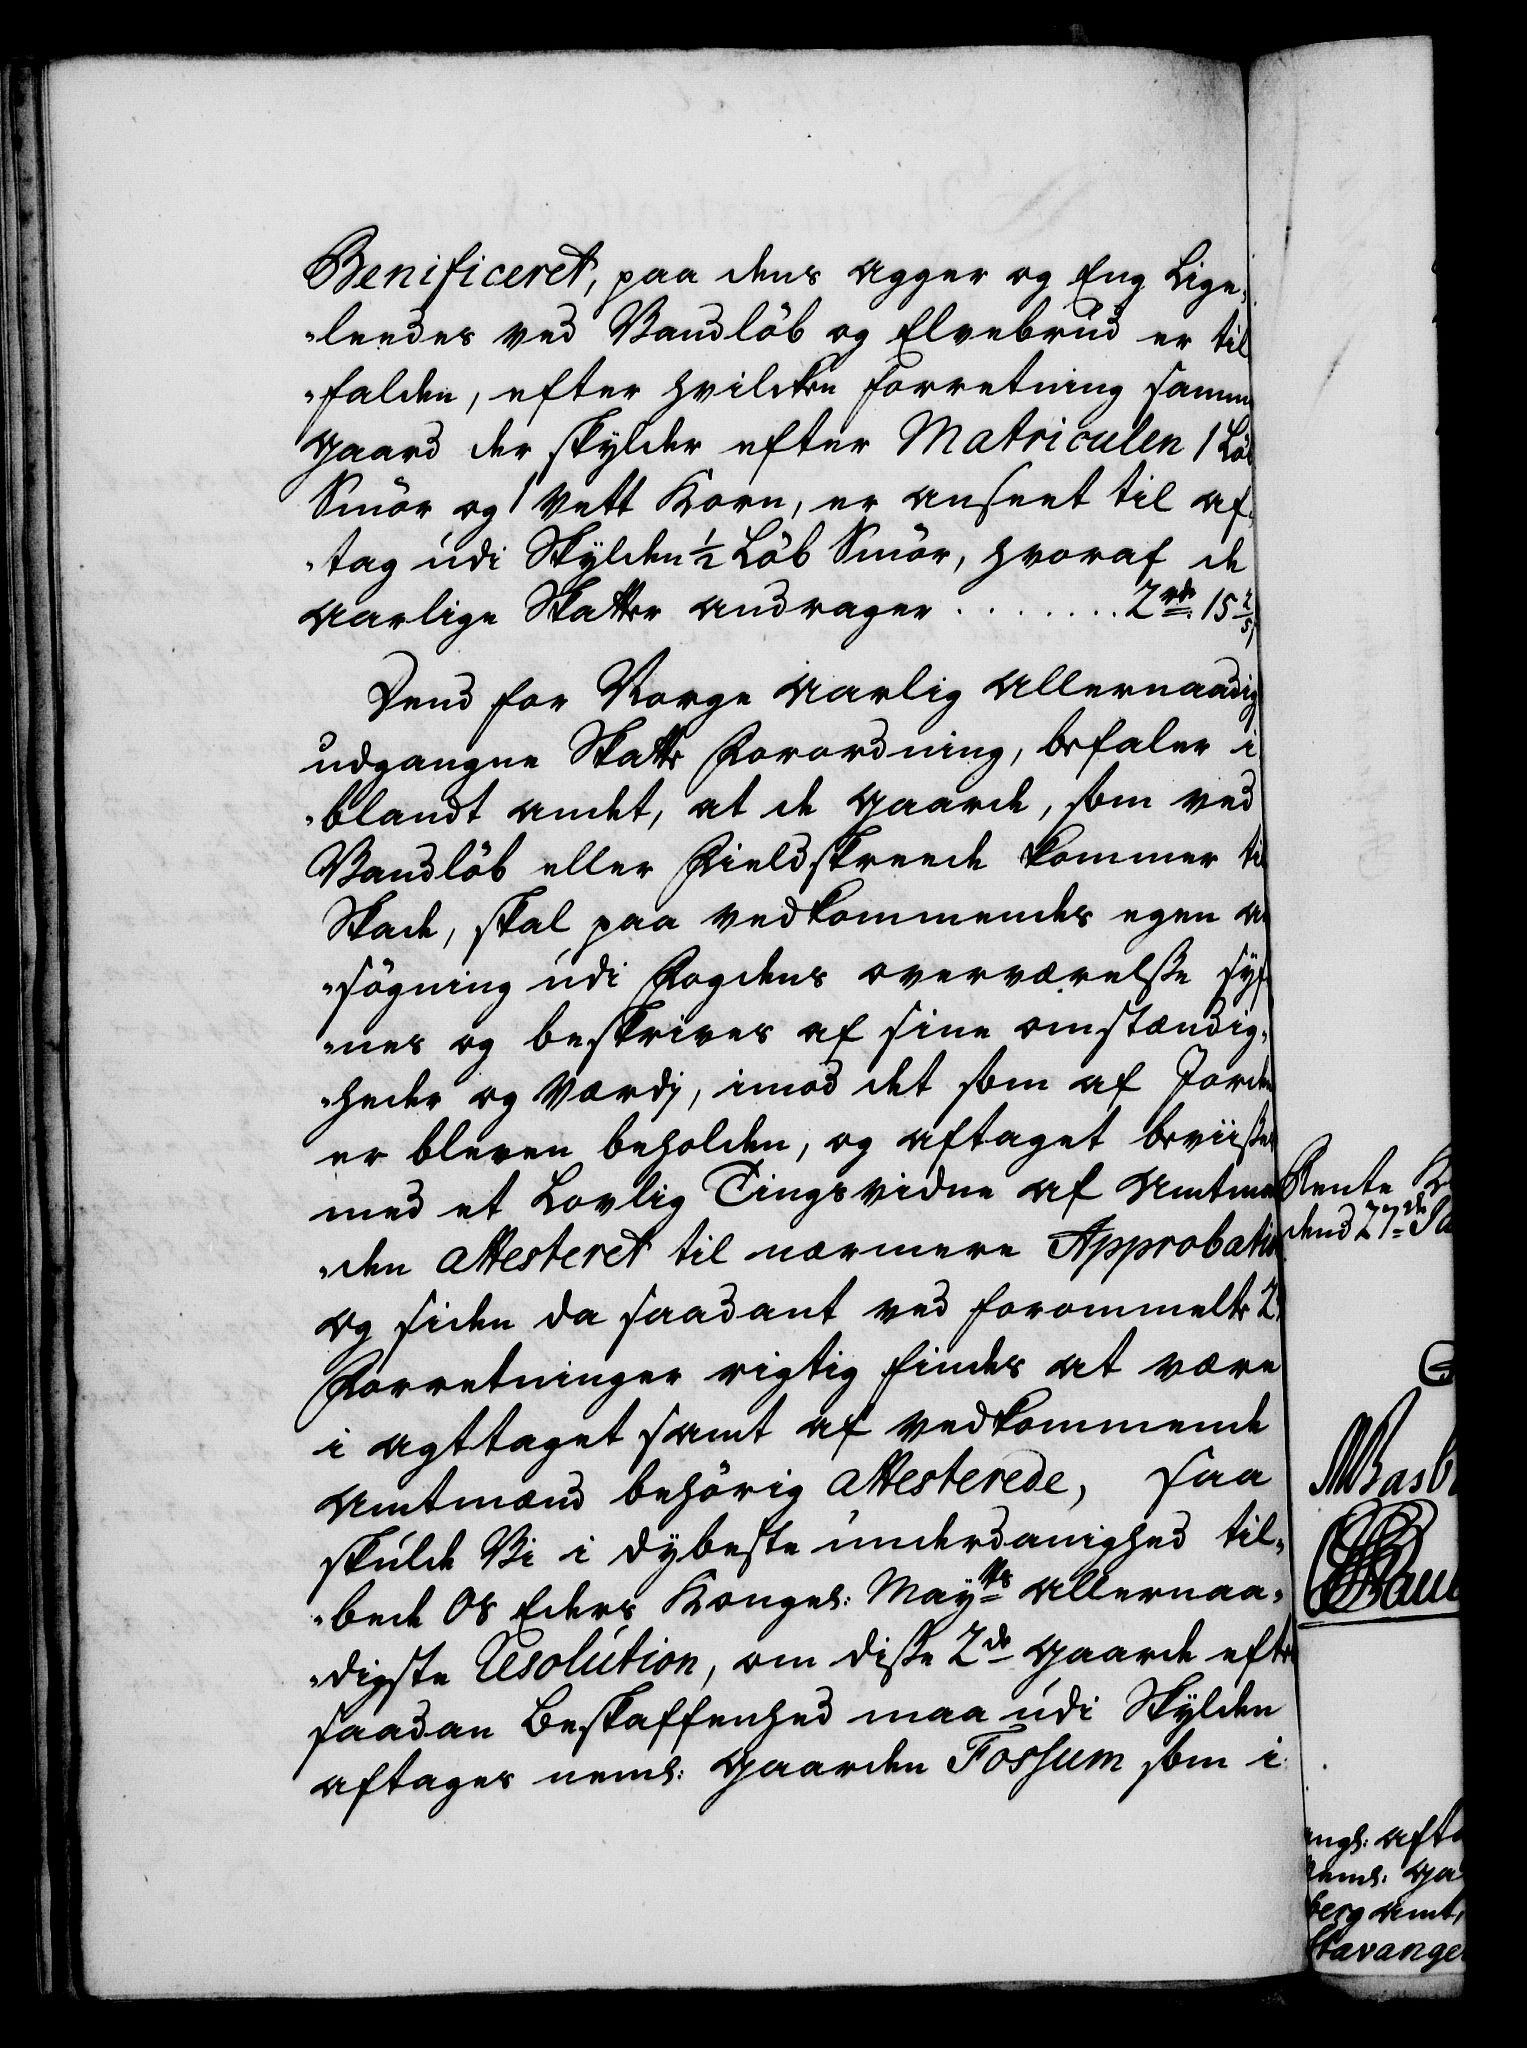 Benificeret, paa dens Agger og Eng Lige,
"leedes ved Vandlöb og Elvebrud er til
"falden, efter hvilcken Forretning samme
Gaard der skylder efter Matriculen 1 Löb
Smör og 1 Vett Korn, er anseet til af,
"tag udi Skylden ½ Löb Smör, hvoraf de
Aarlige Skatter andrager . . . . . . . 2 rdr. 15
Dend for Norge Aarlig Allernaadigst
udgangne Skatte Forordning, befaler i
"blandt andet, at de Gaarde, som ved
Vandlöb eller Fieldskreede kommer til
Skade, skal paa vedkommendes egen an
"sögning udi Fogdens overværelsse syf
"nes og beskrives af sine omstændig,
"heder og Værdj, imod det som af Jorden
er bleven beholden, og aftaget beviisse
med et Lovlig Tingsvidne af Amtman
"den attesteret til nærmere Approbation
og siden da saadant ved forommelte 2de
Forretninger rigtig findes at være
i agttaget samt af vedkommende
Amtmænd behörig attesterede, saa
skulde Vi i dybeste underdanighed til,
"bede Os Eders Kongel: Mayts Allernaa,
"digste Resolution, om disse 2de Gaarde efter
saadan Beskaffenhed maa udi Skylden
aftages neml: Gaarden Fossum som i
Rente K
dend 27de
ngl: afta
neml: Ga
berg Amt,
Stavange